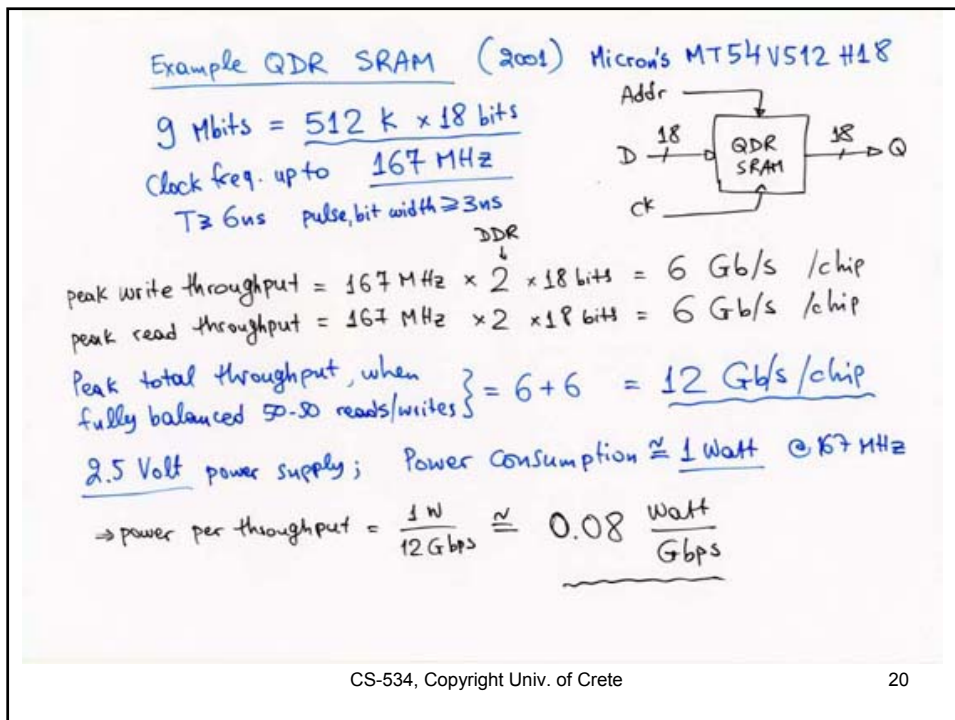 Example QDR SRAM (2001) Micron's MT54V512H18
9 Mbits = 512 K × 18 bits
Clock freq. up to 167 MHz
T ≥ 6ns pulse, bit width ≥ 3ns
Addr
D 18 QDR SRAM 18 Q
ck
DDR
peak write throughput = 167 MHz × 2 × 18 bits = 6 Gb/s /chip
peak read throughput = 167 MHz × 2 × 18 bits = 6 Gb/s /chip
Peak total throughput, when
fully balanced 50-50 reads/writes } = 6 + 6 = 12 Gb/s /chip
2.5 Volt power supply; Power Consumption ≅ 1 Watt @ 167 MHz
⇒ power per throughput = 1 W / 12 Gbps ≅ 0.08 Watt / Gbps
CS-534, Copyright Univ. of Crete 20